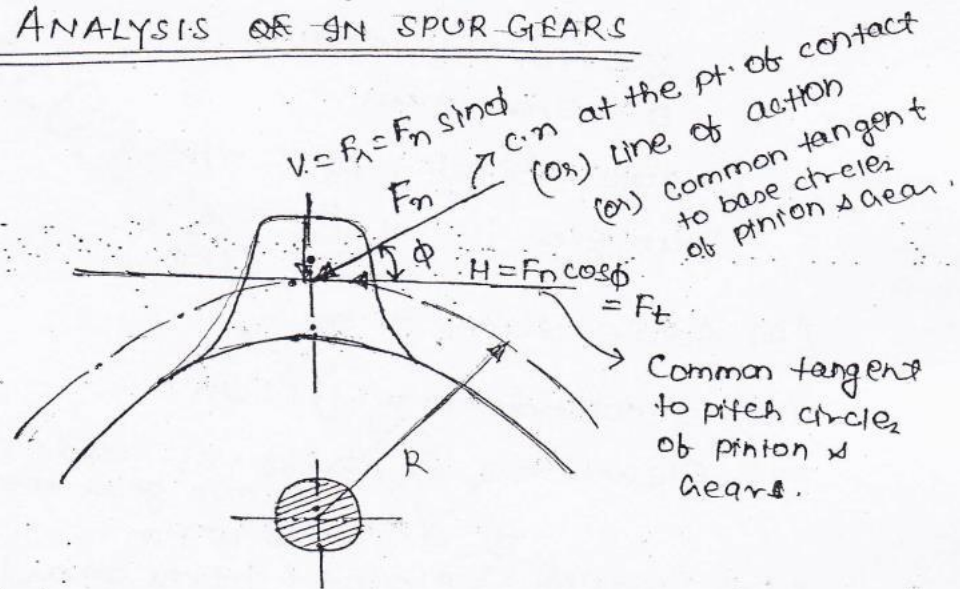 ANALYSIS OF IN SPUR GEARS
V = Fr = Fn sinϕ
Fn
C.n at the pt. of contact
(or) Line of action
(or) Common tangent
to base circles
of pinion & Gear.
ϕ
H = Fn cosϕ
= Ft
Common tangent
to pitch circles
of pinion &
Gears.
R